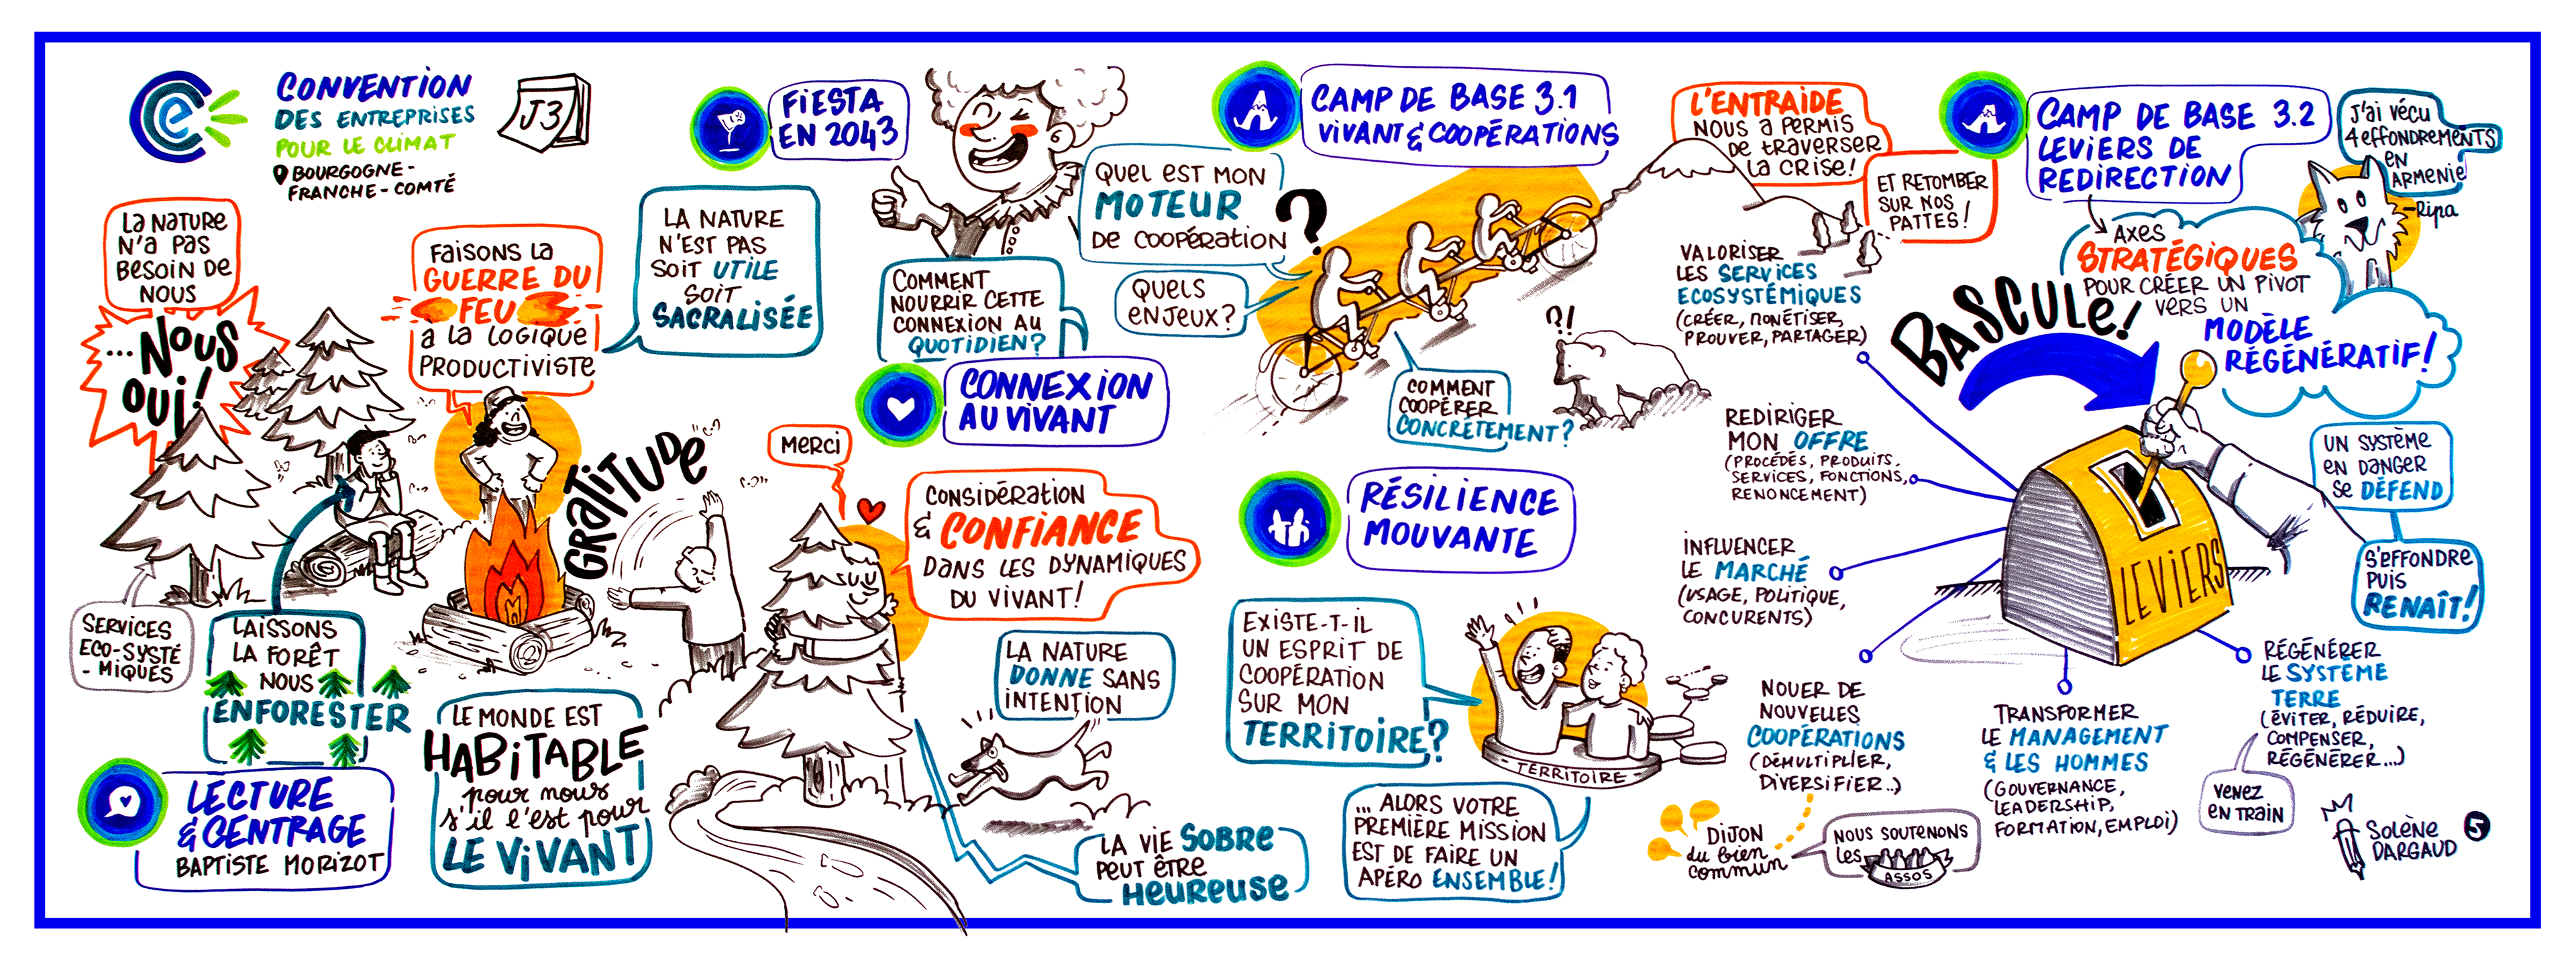 CONVENTION
DES ENTREPRISES
POUR LE CLIMAT
BOURGOGNE-
FRANCHE-COMTÉ
J3
LA NATURE
N'A PAS
BESOIN DE
NOUS
...NOUS
OUI!
FAISONS LA
GUERRE DU
FEU
À LA LOGIQUE
PRODUCTIVISTE
LA NATURE
N'EST PAS
SOIT UTILE
SOIT
SACRALISÉE
SERVICES
ECO-SYSTÉ
-MIQUES
LAISSONS
LA FORÊT
NOUS
ENFORESTER
LECTURE
& CENTRAGE
BAPTISTE MORIZOT
LE MONDE EST
HABITABLE
pour nous
s'il l'est pour
LE VIVANT
GRATITUDE
FIESTA
EN 2043
COMMENT
NOURRIR CETTE
CONNEXION AU
QUOTIDIEN?
CONNEXION
AU VIVANT
MERCI
CONSIDÉRATION
& CONFIANCE
DANS LES DYNAMIQUES
DU VIVANT!
LA NATURE
DONNE SANS
INTENTION
LA VIE SOBRE
PEUT ÊTRE
HEUREUSE
CAMP DE BASE 3.1
VIVANT & COOPÉRATIONS
QUEL EST MON
MOTEUR
DE COOPÉRATION
?
QUELS
ENJEUX?
COMMENT
COOPÉRER
CONCRÈTEMENT?
?!
L'ENTRAIDE
NOUS A PERMIS
DE TRAVERSER
LA CRISE!
ET RETOMBER
SUR NOS
PATTES!
RÉSILIENCE
MOUVANTE
EXISTE-T-IL
UN ESPRIT DE
COOPÉRATION
SUR MON
TERRITOIRE?
- TERRITOIRE -
... ALORS VOTRE
PREMIÈRE MISSION
EST DE FAIRE UN
APÉRO ENSEMBLE!
CAMP DE BASE 3.2
LEVIERS DE
REDIRECTION
J'AI VÉCU
4 EFFONDREMENTS
EN
ARMENIE
-Ripa
AXES
STRATÉGIQUES
POUR CRÉER UN PIVOT
VERS UN
MODÈLE
RÉGÉNÉRATIF!
BASCULE!
LEVIERS
VALORISER
LES SERVICES
ECOSYSTÉMIQUES
(CRÉER, MONÉTISER,
PROUVER, PARTAGER)
REDIRIGER
MON OFFRE
(PROCÉDÉS, PRODUITS,
SERVICES, FONCTIONS,
RENONCEMENT)
INFLUENCER
LE MARCHÉ
(USAGE, POLITIQUE,
CONCURENTS)
NOUER DE
NOUVELLES
COOPÉRATIONS
(DÉMULTIPLIER,
DIVERSIFIER..)
DIJON
du bien
commun
NOUS SOUTENONS
LES
ASSOS
TRANSFORMER
LE MANAGEMENT
& LES HOMMES
(GOUVERNANCE,
LEADERSHIP,
FORMATION, EMPLOI)
RÉGÉNÉRER
LE SYSTÈME
TERRE
(ÉVITER, RÉDUIRE,
COMPENSER,
RÉGÉNÉRER...)
VENEZ
EN TRAIN
UN SYSTÈME
EN DANGER
SE DÉFEND
S'EFFONDRE
PUIS
RENAÎT!
SOLÈNE
DARGAUD
5